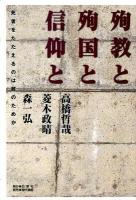 殉教と
殉国と
信仰と
死者をたたえるのは誰のためか
高橋哲哉
菱木政晴
森一弘